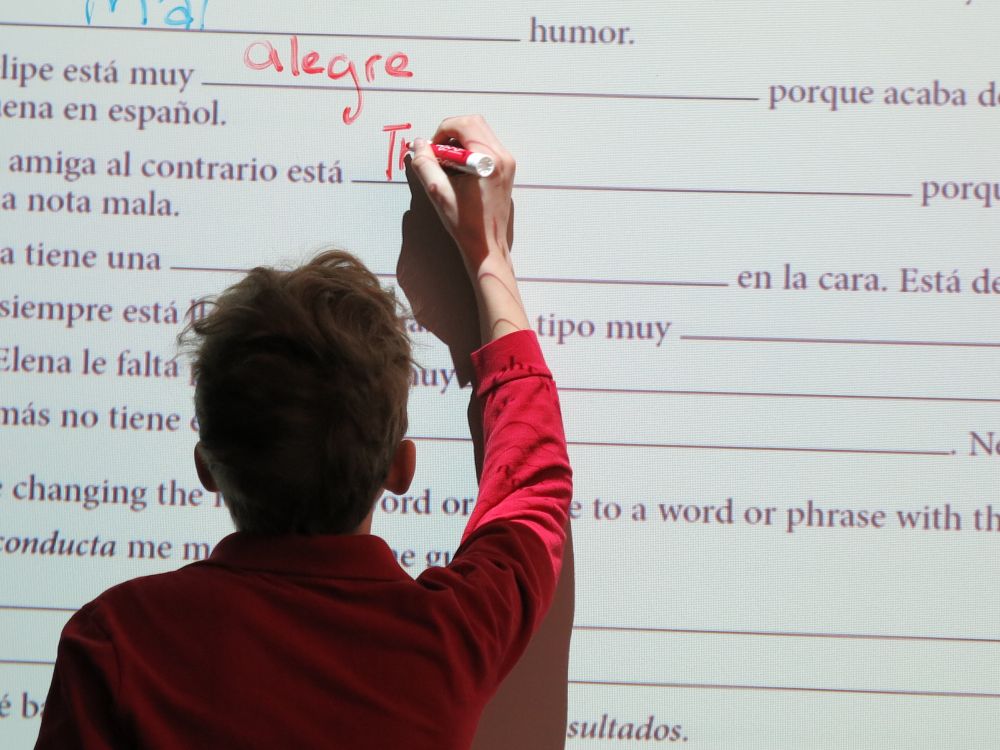 mal
humor.
alegre
lipe está muy porque acaba de
ena en español.
Tr
amiga al contrario está porqu
a nota mala.
a tiene una en la cara. Está de
siempre está tipo muy
Elena le falta muy
más no tiene . No
changing the ord or e to a word or phrase with th
conducta me m e gu
é ba
sultados.